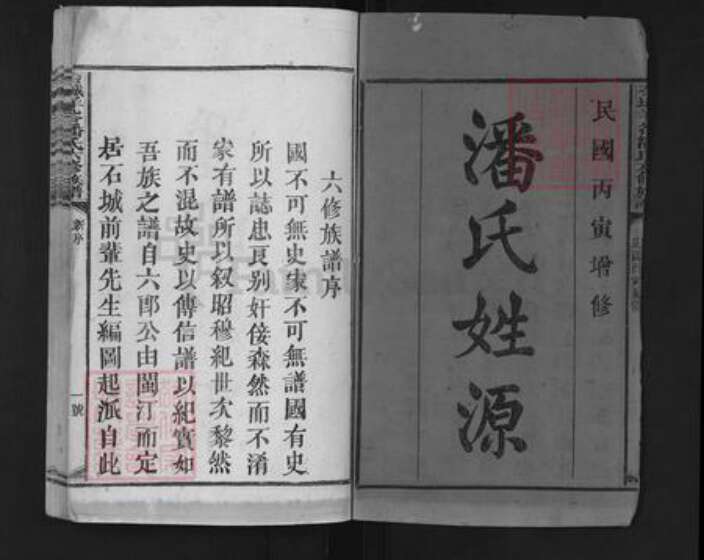 民國丙寅增修
潘氏姓源
六修族譜序
國不可無史家不可無譜國有史
所以誌忠良別奸佞森然而不淆
家有譜所以叙昭穆紀世次黎然
而不混故史以傳信譜以紀實如
吾族之譜自六郎公由閩汀而定
居石城前輩先生編圖起派自此
新序
一號